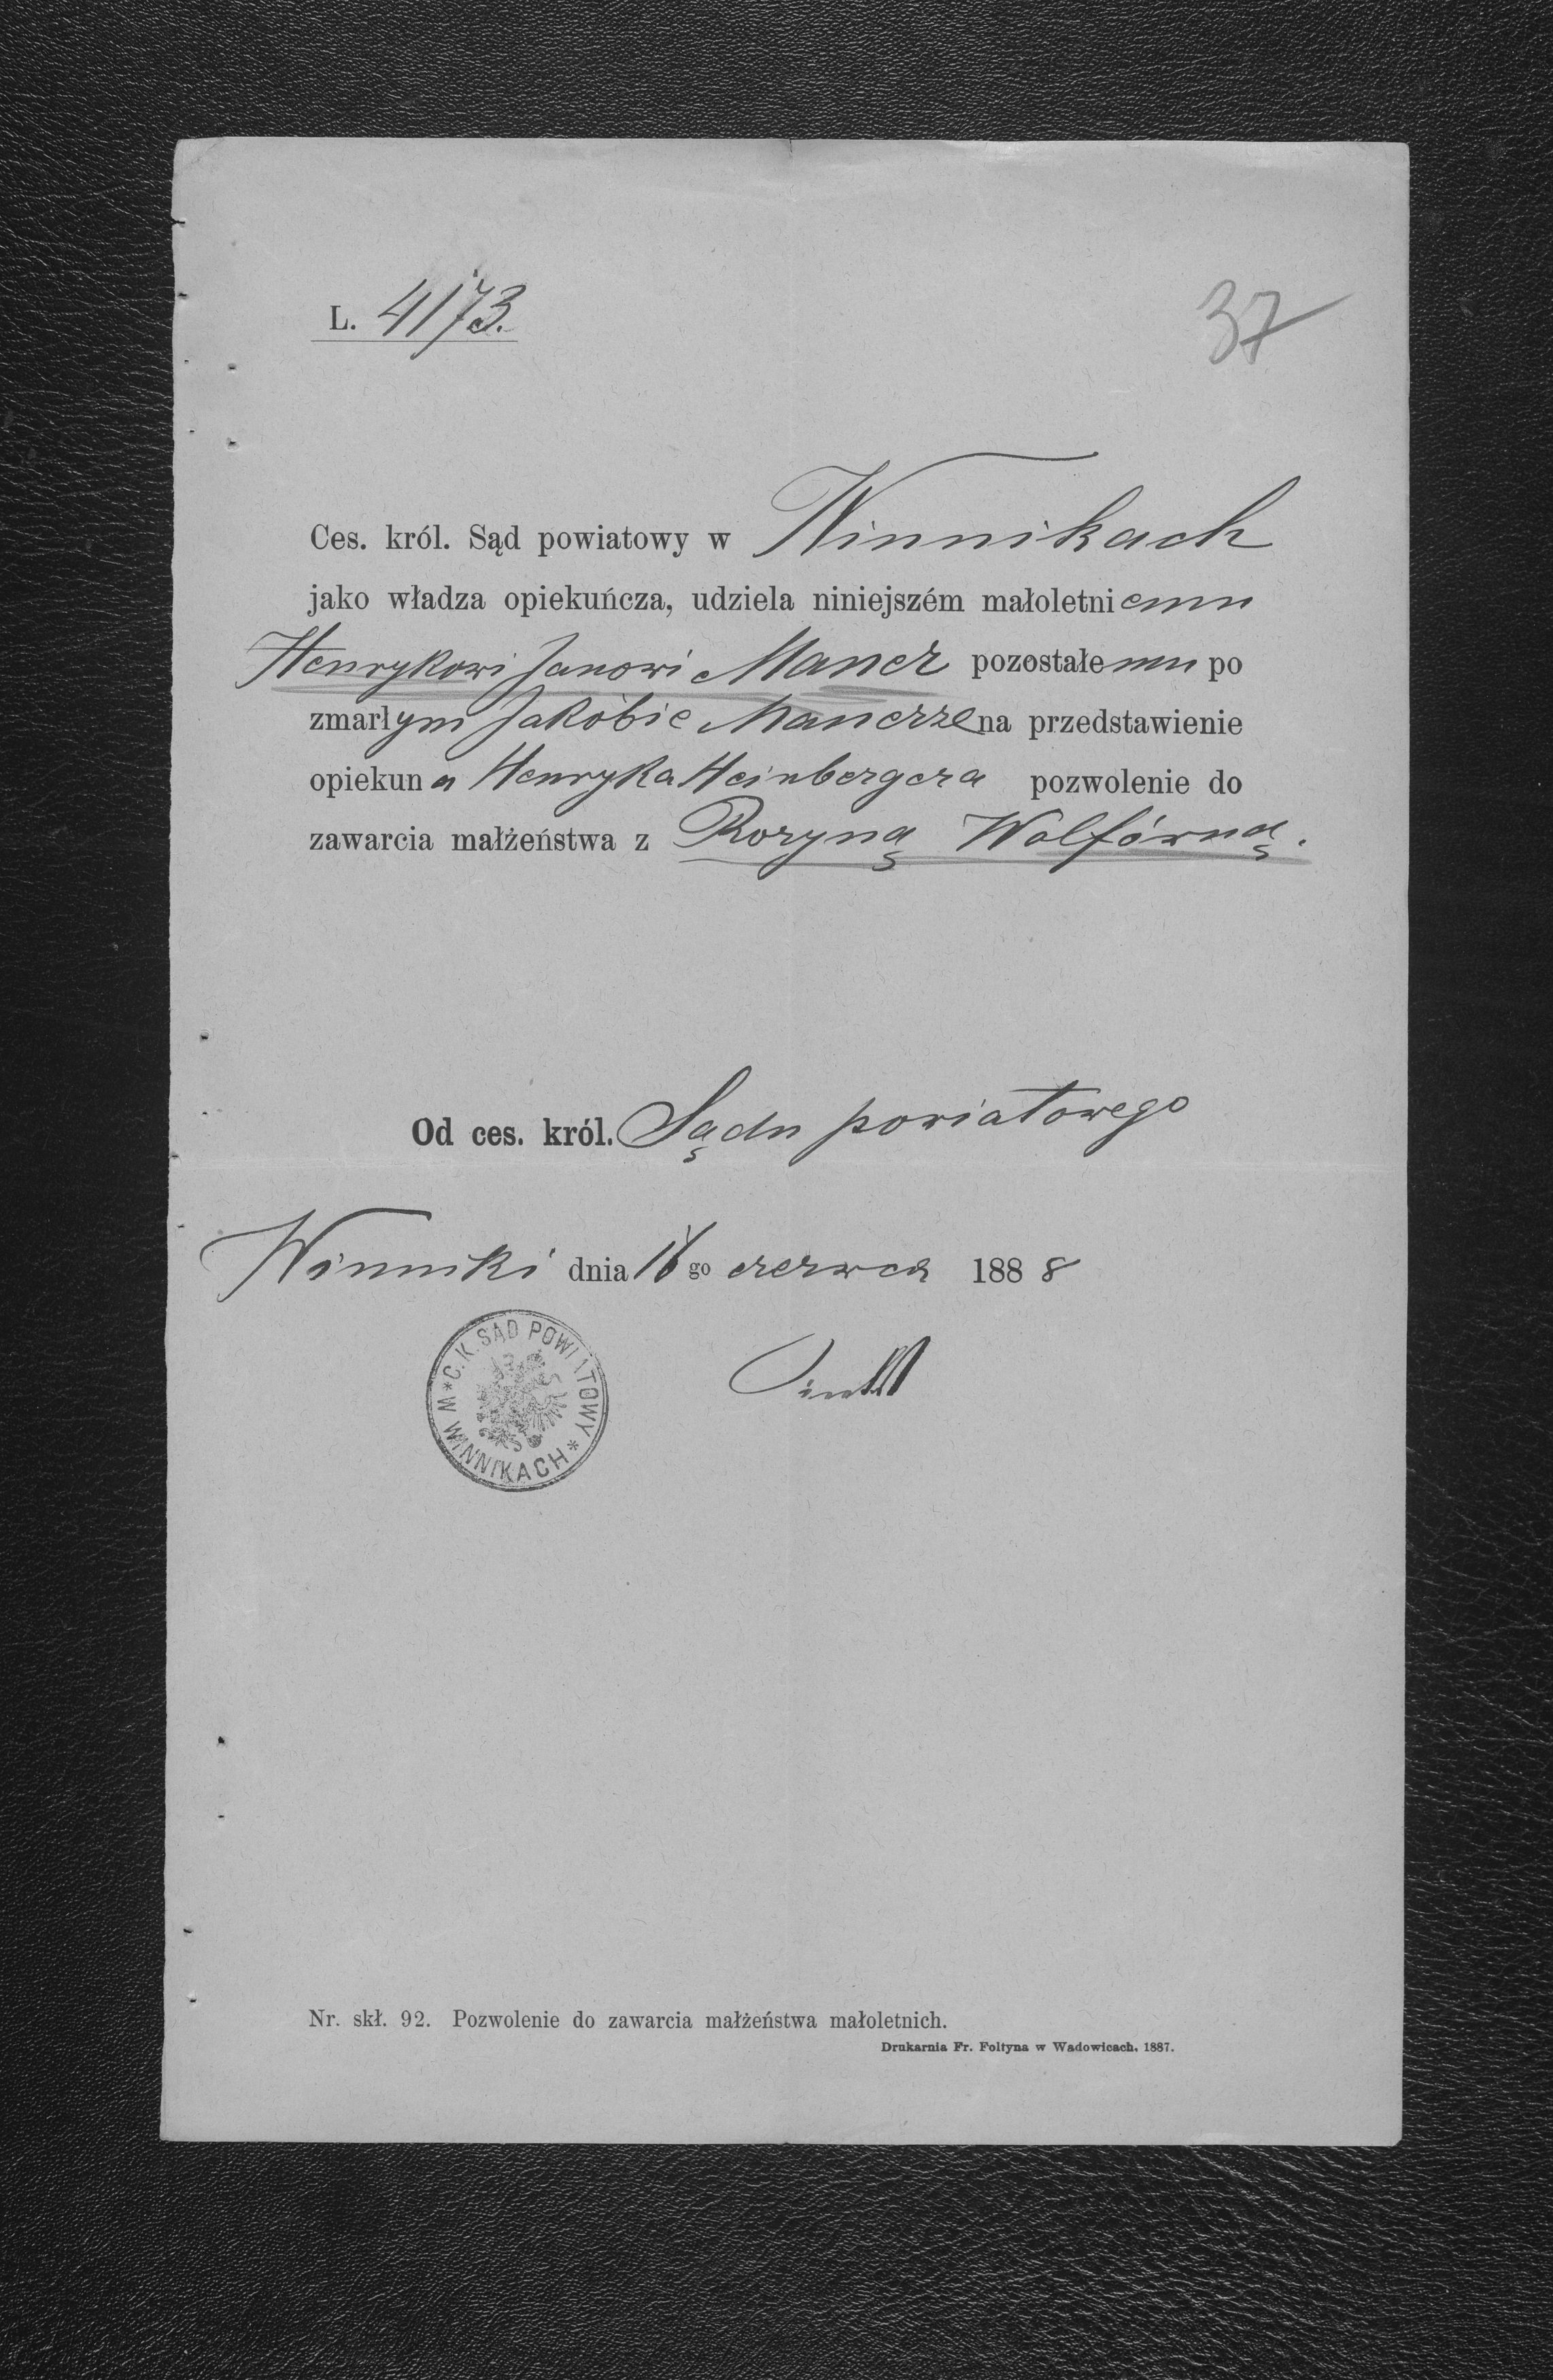 L. 4173.
37
Ces. król. Sąd powiatowy w Winnikach
jako władza opiekuńcza, udziela niniejszém małoletniemu
Henrykowi Janowi Mauer pozostałemu po
zmarłym Jakóbie Mauerze na przedstawienie
opiekuna Henryka Heinbergera pozwolenie do
zawarcia małżeństwa z Rozyną Wolfówną.
Od ces. król. Sądu powiatowego
Winniki dnia go czerwca 1888
* C. K. SĄD POWIATOWY * W WINNIKACH
Nr. skł. 92. Pozwolenie do zawarcia małżeństwa małoletnich.
Drukarnia Fr. Foltyna w Wadowicach, 1887.